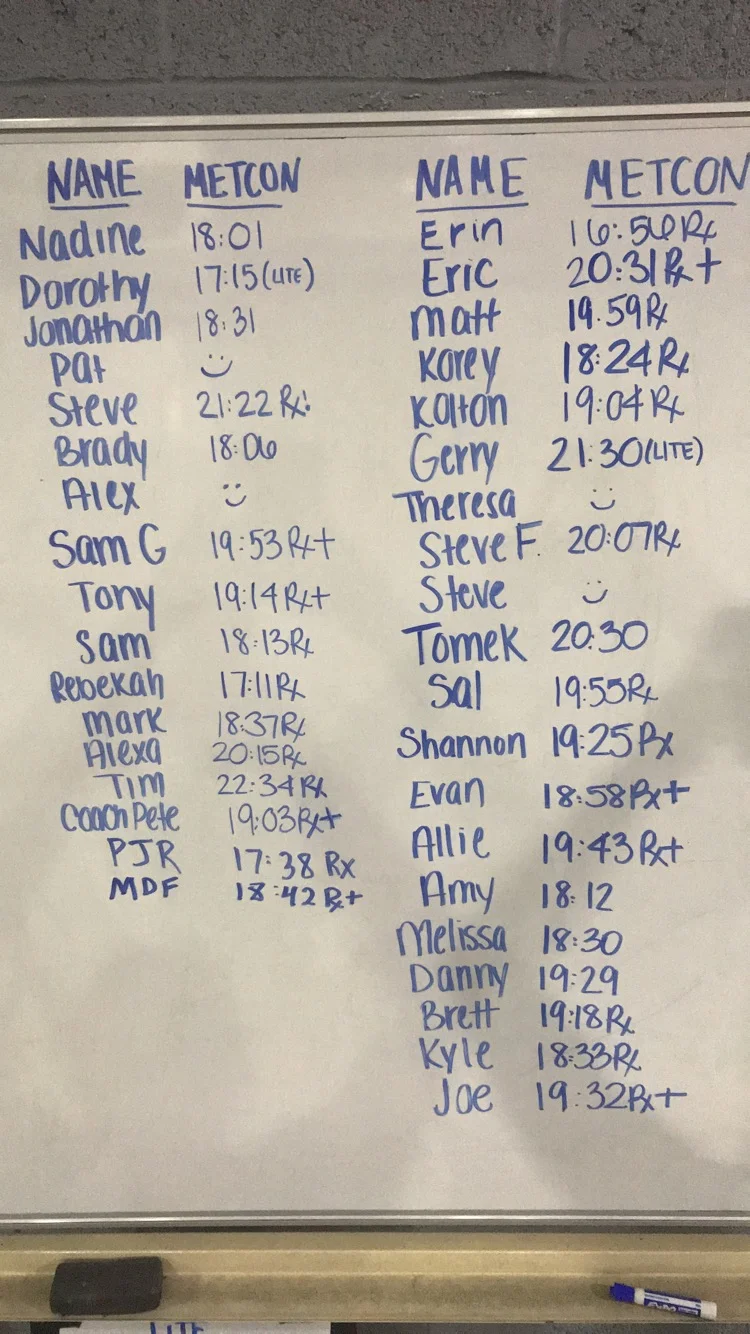 NAME METCON
Nadine 18:01
Dorothy 17:15 (LITE)
Jonathan 18:31
Pat
Steve 21:22 Rx!
Brady 18:06
Alex
Sam G 19:53 Rx+
Tony 19:14 Rx+
Sam 18:13 Rx
Rebekah 17:11 Rx
Mark 18:37 Rx
Alexa 20:15 Rx
Tim 22:34 Rx
Coach Pete 19:03 Rx+
PJR 17:38 Rx
MDF 18:42 Rx+
NAME METCON
Erin 16:56 Rx
Eric 20:31 Rx+
Matt 19.59 Rx
Korey 18:24 Rx
Kolton 19:04 Rx
Gerry 21:30 (LITE)
Theresa
Steve F. 20:07 Rx
Steve
Tomek 20:30
Sal 19:55 Rx
Shannon 19:25 Rx
Evan 18:58 Rx+
Allie 19:43 Rx+
Amy 18:12
Melissa 18:30
Danny 19:29
Brett 19:18 Rx
Kyle 18:33 Rx
Joe 19:32 Rx+
LITE